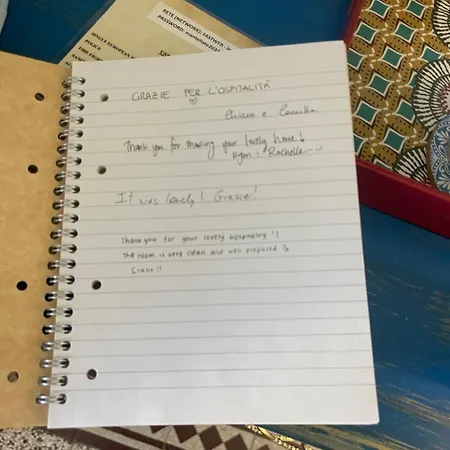 RETE (NETWORK): FASTWEB -
PASSWORD:
SINGLE EUROPEAN
POLICE
FIRE FIGH
GRAZIE PER L'OSPITALITÀ
Chiara e Camilla
Thank you for sharing your lovely home!
Ryan & Rachelle
It was lovely! Grazie!
Thank you for your lovely hospitality!!
The room is very clean and well prepared
Grazie!!